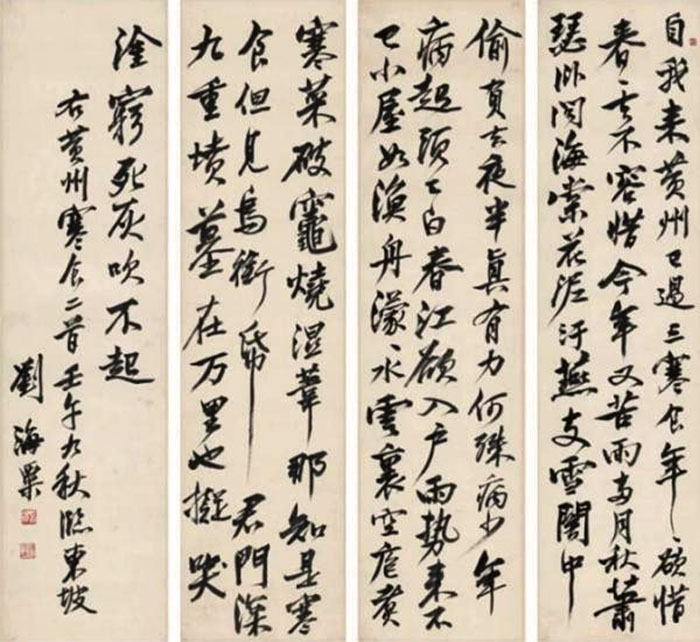 自我来黄州已過三寒食年々欲惜
春々去不容惜今年又苦雨兩月秋蕭
瑟卧聞海棠花泥汙燕支雪闇中
偷負去夜半真有力何殊病少年
病起頭已白春江欲入户雨勢来不
已小屋如漁舟濛々水雲裏空庖煮
寒菜破竈燒湿葦那知是寒
食但見烏銜帋君門深
九重墳墓在万里也擬哭
塗窮死灰吹不起
右黄州寒食二首壬午九秋臨東坡
劉海粟